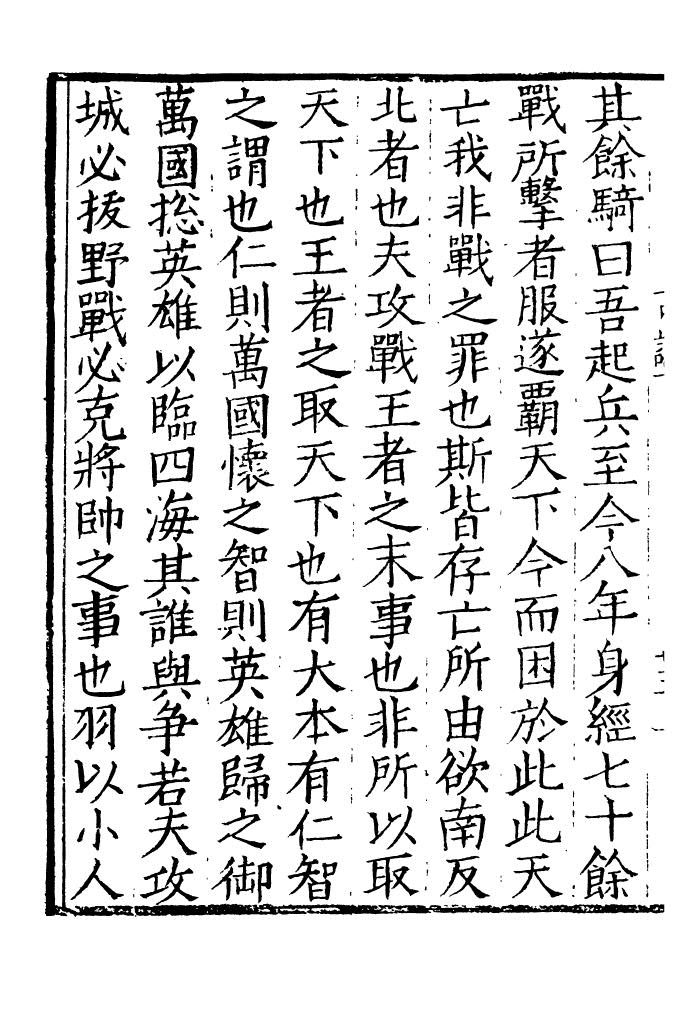 其餘騎曰吾起兵至今八年身經七十餘
戰所擊者服遂覇天下今而困於此此天
亡我非戰之罪也斯皆存亡所由欲南反
北者也夫攻戰王者之末事也非所以取
天下也王者之取天下也有大本有仁智
之謂也仁則萬國懷之智則英雄歸之御
萬國揔英雄以臨四海其誰與爭若夫攻
城必拔野戰必克將帥之事也羽以小人